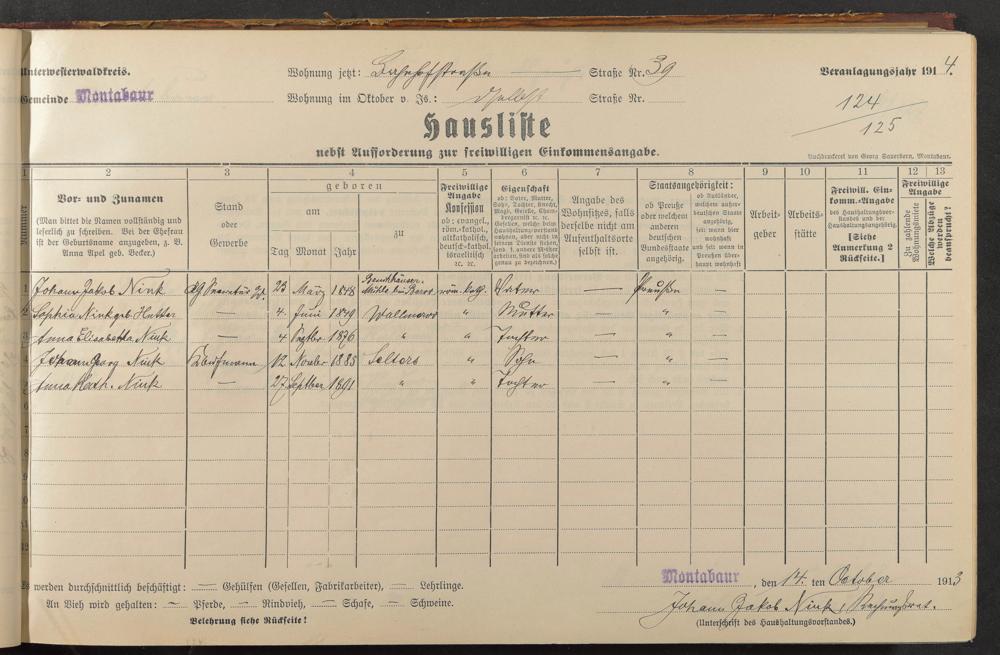 Unterwesterwaldkreis. Wohnung jetzt: Bahnhofstraße Straße Nr. 39 Veranlagungsjahr 1914.
Gemeinde Montabaur Wohnung im Oktober v. Js.: dselbst Straße Nr. 124
125
Hausliste
nebst Aufforderung zur freiwilligen Einkommensangabe.
Buchdruckerei von Georg Sauerborn, Montabaur.
1 2 3 4 5 6 7 8 9 10 11 12 13
Nummer
Vor- und Zunamen
(Man bittet die Namen vollständig und
leserlich zu schreiben. Bei der Ehefrau
ist der Geburtsname anzugeben, z. B.
Anna Apel geb. Becker.)
Stand
oder
Gewerbe
geboren
am
Tag Monat Jahr
zu
Freiwillige
Angabe
Konfession
ob: evangel.,
röm.-kathol.,
altkatholisch,
deutsch-kathol.
israelitisch
zc. zc.
Eigenschaft
ob: Vater, Mutter,
Sohn, Tochter, Knecht,
Magd, Geselle, Cham-
bregarnist im
Angabe des
Wohnsitzes, falls
derselbe nicht am
Aufenthaltsorte
selbst ist.
Staatsangehörigkeit:
ob Preuße
oder welchem
anderen
deutschen
Bundesstaate
angehörig.
ob Ausländer,
welchem außer-
deutschen Staate
angehörig,
seit wann hier
wohnhaft
und seit wann in
Preußen über-
haupt wohnhaft
Arbeit-
geber
Arbeits-
stätte
Freiwill. Ein-
komm.-Angabe
des Haushaltungsvor-
standes und der
Haushaltungsangehörig.
[Siehe
Anmerkung 2
Rückseite.]
Freiwillige
Angabe
Zu zahlende
Wohnungsmiete
Welche Abzüge
werden
beansprucht?
1 Johann Jakob Nink 23 März 1848 röm. kath. Vater — Preußen —
2 Sophia Nink geb. Hutter — 4. Juni 1849 Wallmerod " Mutter — " —
3 Anna Elisabetha Nink — 4 Septbr. 1876 " " Tochter — " —
4 Johann Georg Nink Kaufmann 12 Novbr 1885 Selters " Sohn — " —
5 Anna Kath. Nink — 27 Septber 1891 " " Tochter — " —
6
7
8
9
10
11
12
Es werden durchschnittlich beschäftigt: — Gehülfen (Gesellen, Fabrikarbeiter), — Lehrlinge.
An Vieh wird gehalten: — Pferde, — Rindvieh, — Schafe, — Schweine.
Belehrung siehe Rückseite!
Montabaur, den 14. ten October 1913
Johann Jakob Nink, Rechnungsrat.
(Unterschrift des Haushaltungsvorstandes.)